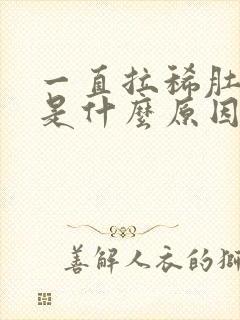 一直拉稀肚
是什麼原因
善解人衣的獅